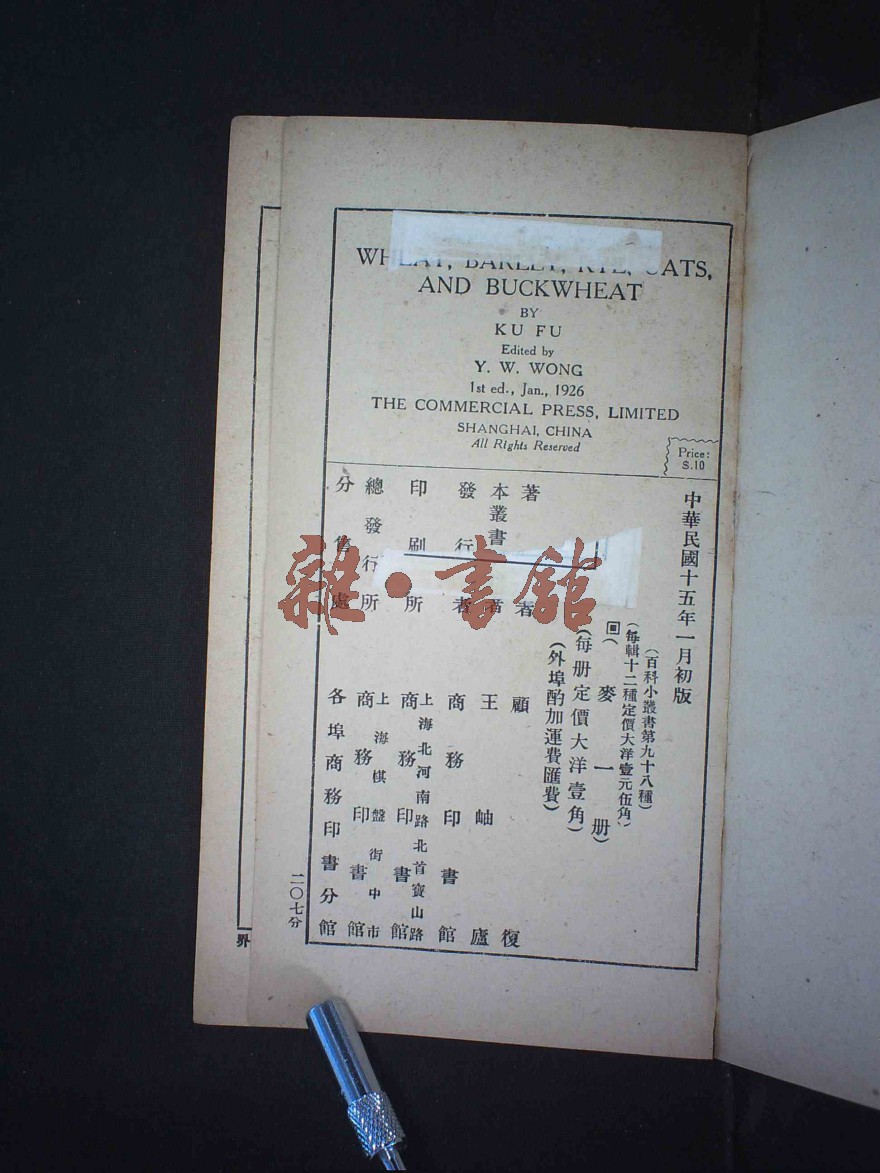 WHEAT, BARLEY, RYE, OATS,
AND BUCKWHEAT
BY
KU FU
Edited by
Y. W. WONG
1st ed., Jan., 1926
THE COMMERCIAL PRESS, LIMITED
SHANGHAI, CHINA
All Rights Reserved
Price:
$.10
中華民國十五年一月初版
(百科小叢書第九十八種)
(每輯十二種定價大洋壹元伍角)
回(麥一册)
(每册定價大洋壹角)
(外埠酌加運費匯費)
著 者 顧復
本叢書 者 王岫廬
發行者 商務印書館
印刷所 上海北河南路北首寶山路 商務印書館
總發行所 上海棋盤街中市 商務印書館
分售處 各埠商務印書分館
二〇七分
界
雜·書館